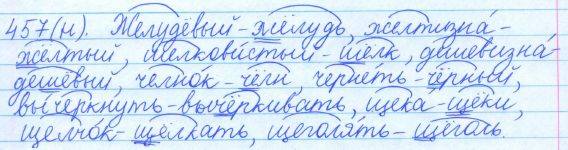 457(н). Желудёвый-жёлудь, желтизна-
жёлтый, шелковистый-шёлк, дешевизна-
дешёвый, челнок-чёлн, чернеть-чёрный,
вычеркнуть-вычёркивать, щека-щёки,
щелчок-щёлкать, щеголять-щёголь.